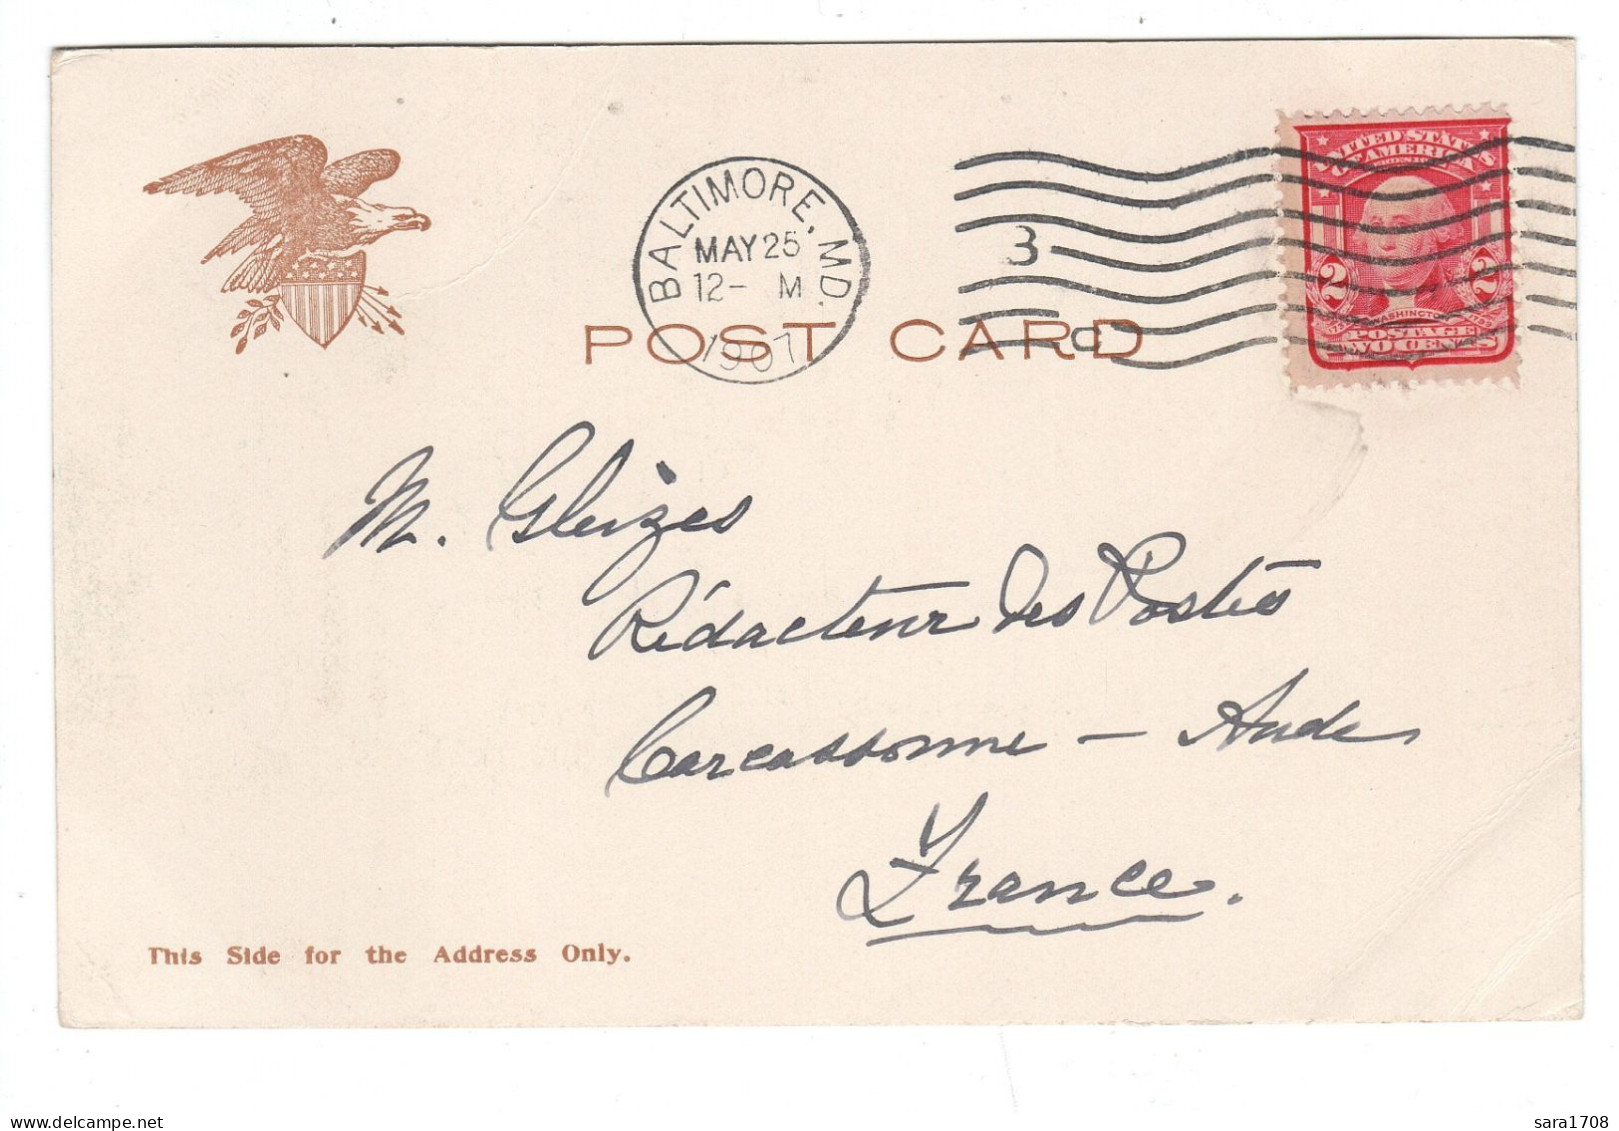 BALTIMORE, MD.
MAY 25
12- M
1907
3
C
UNITED STATES
OF AMERICA
2 2
WASHINGTON
POSTAGE
TWO CENTS
POST CARD
M. Gleizes
Rédacteur des Postes
Carcassonne - Aude
France.
This Side for the Address Only.
sara1708